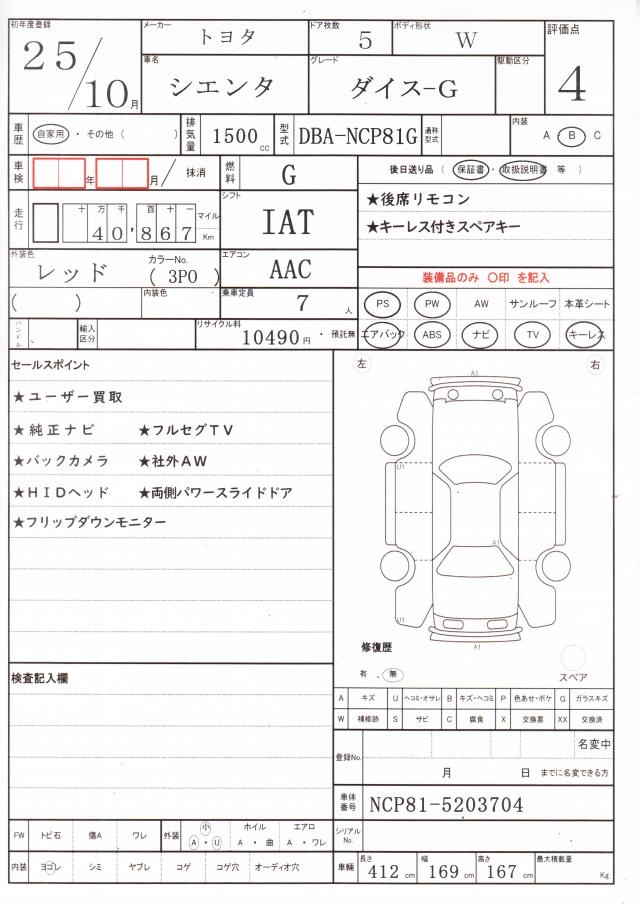 初年度登録 メーカー トヨタ ドア枚数 5 ボディ形状 W 評価点
25/10月 車名 シエンタ グレード ダイス-G 駆動区分 4
車歴 自家用・その他( ) 排気量 1500cc 型式 DBA-NCP81G 通称型式 内装 A B C
車検 年 月 / 抹消 燃料 G 後日送り品 ( 保証書・取扱説明書 等 )
走行 十 万 千 百 十 一 マイル Km シフト IAT ★後席リモコン
40,867 ★キーレス付きスペアキー
外装色 レッド カラーNo. ( 3P0 ) エアコン AAC 装備品のみ 〇印 を記入
( ) 内装色 乗車定員 7人 PS PW AW サンルーフ 本革シート
ハンドル 輸入区分 リサイクル料 10490円・預託無 エアバック ABS ナビ TV キーレス
セールスポイント 左 右
★ユーザー買取
★純正ナビ ★フルセグTV
★バックカメラ ★社外AW
★HIDヘッド ★両側パワースライドドア
★フリップダウンモニター
A1
U1
A1
U1
A1
修復歴
有 . 無 スペア
検査記入欄
A キズ U ヘコミ・オサレ B キズ・ヘコミ P 色あせ・ボケ G ガラスキズ
W 補修跡 S サビ C 腐食 X 交換要 XX 交換済
登録No. 名変中
月 日 までに名変できる方
車体番号 NCP81-5203704
FW トビ石 傷A ワレ 外装 小 A・U ホイル A・曲 エアロ A・ワレ シリアルNo.
内装 ヨゴレ シミ ヤブレ コゲ コゲ穴 オーディオ穴 車輛 長さ 412cm 幅 169cm 高さ 167cm 最大積載量 Kg